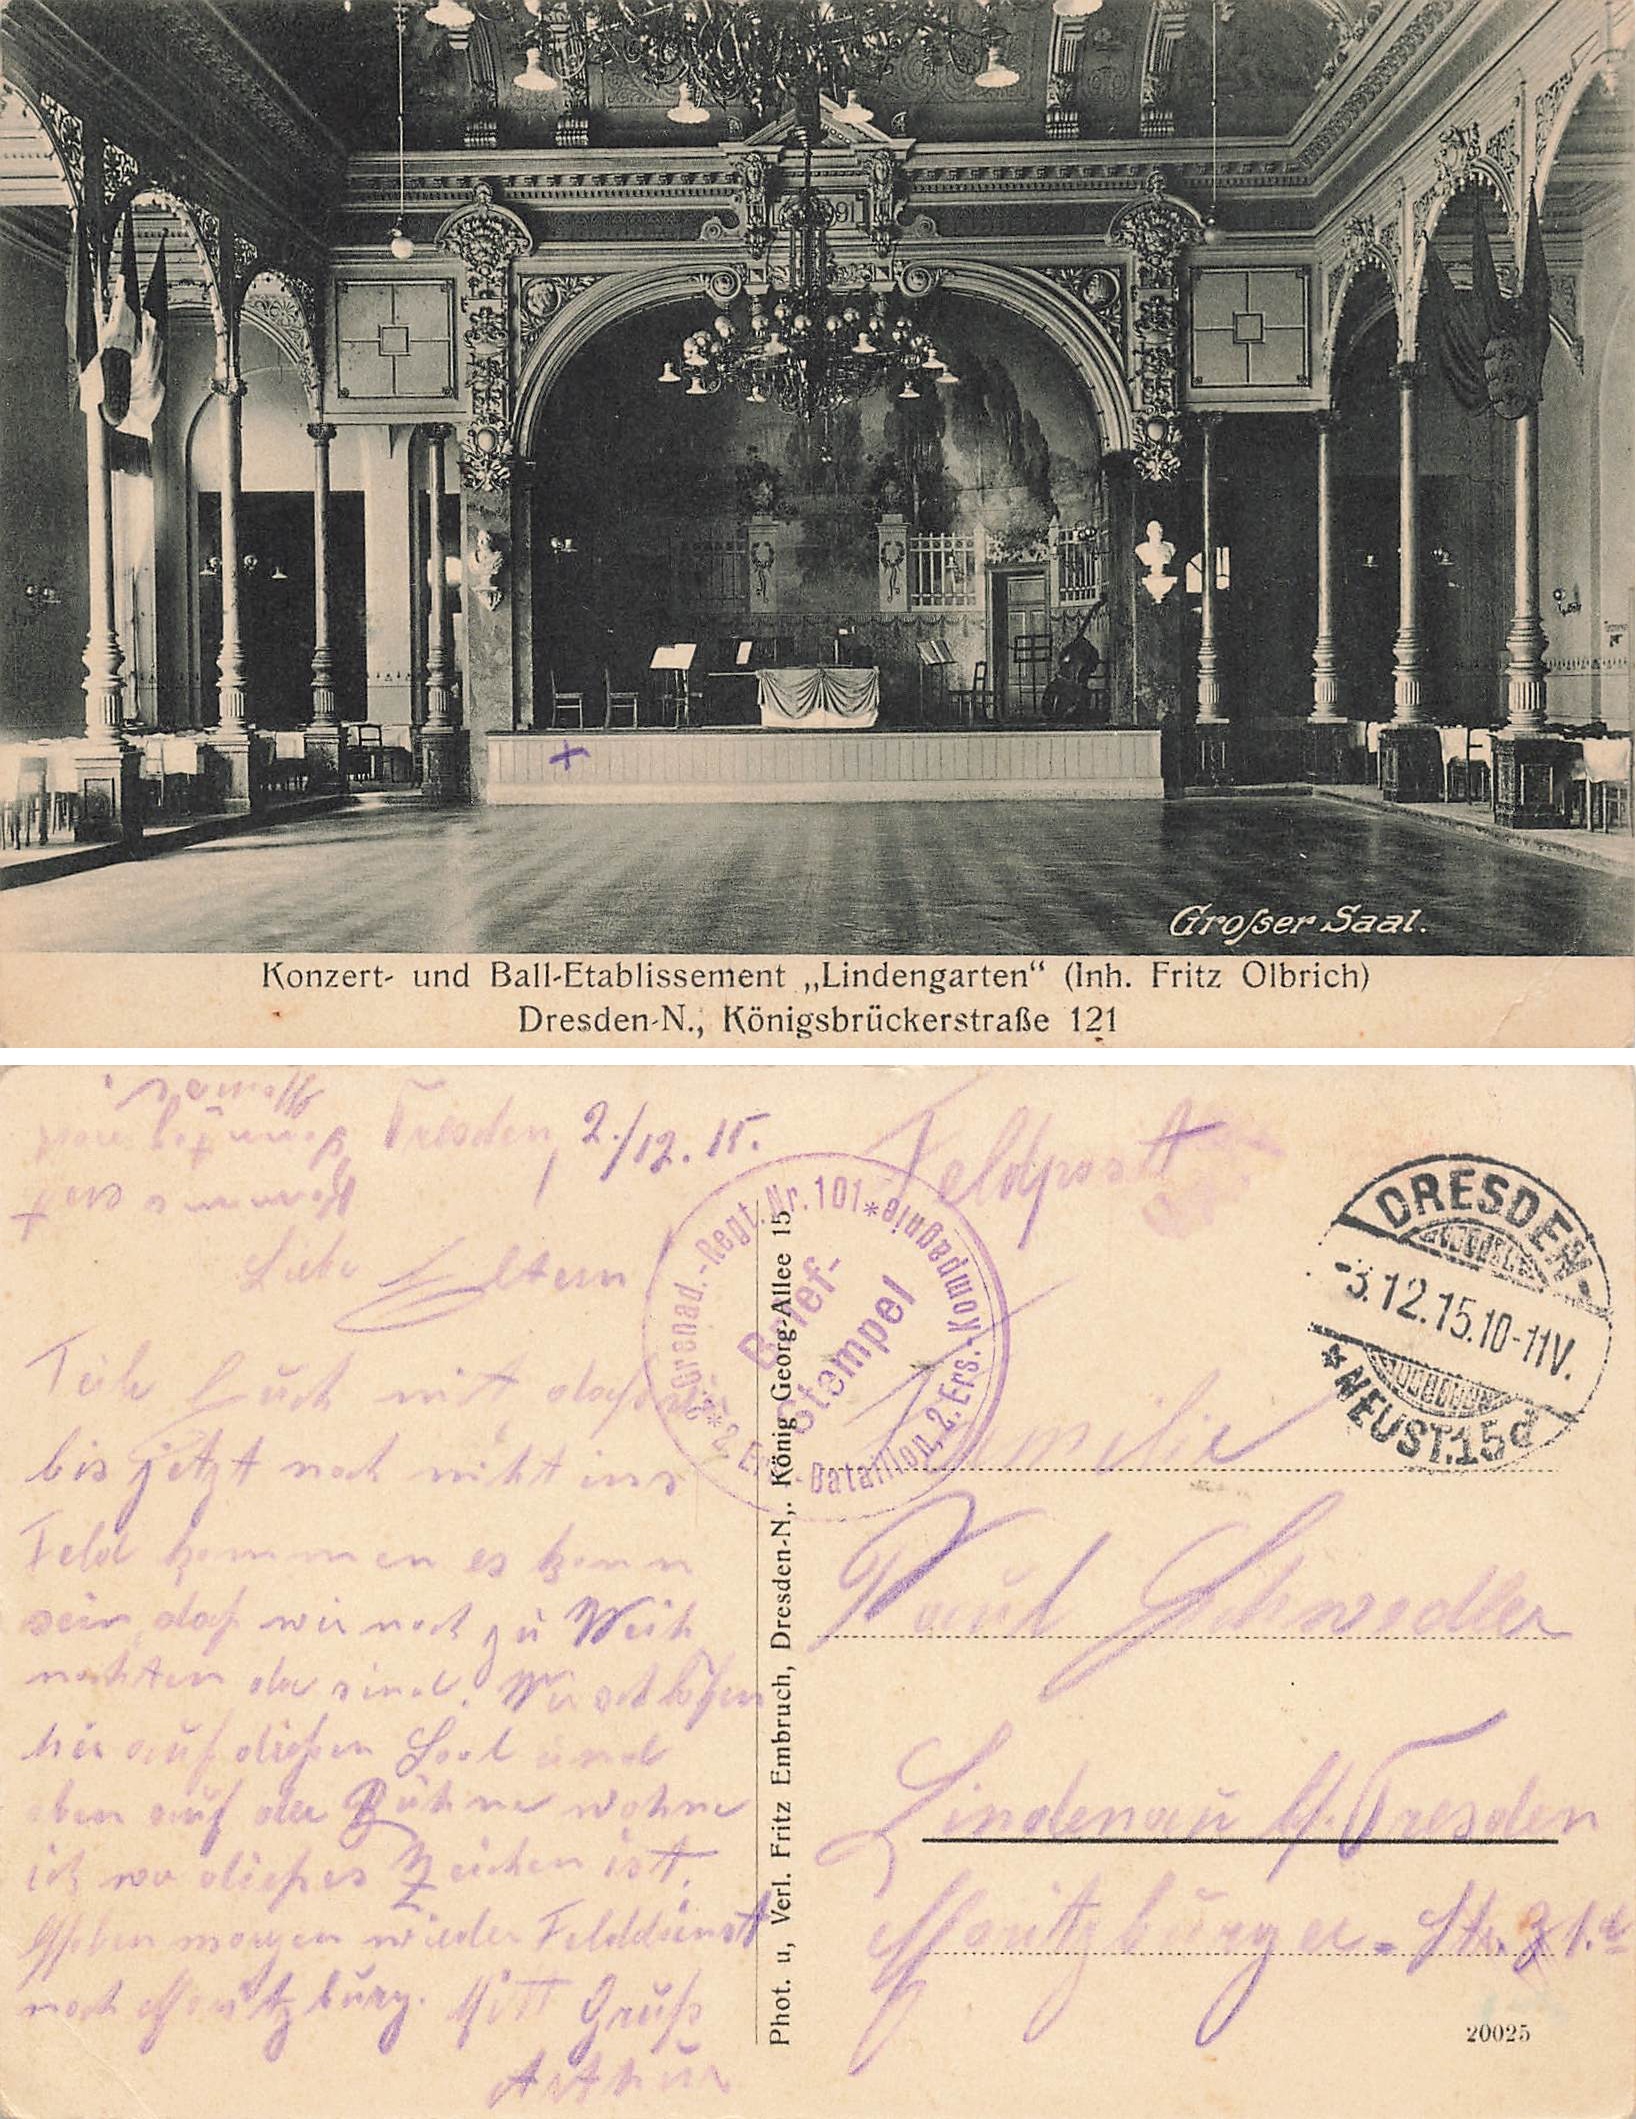 1891
Großer Saal.
Konzert- und Ball-Etablissement „Lindengarten“ (Inh. Fritz Olbrich)
Dresden-N., Königsbrückerstraße 121
Dresden, 2./12. 15.
Liebe Eltern
Teile Euch mit, daß wir
bis jetzt noch nicht ins
Feld kommen es kann
sein daß wir noch zu Weih
nachten da sind. Wir schlafen
hir auf dießen Saal und
oben auf der Bühne wohne
ich wo dießes Zeichen ist.
Haben morgen wieder Felddienst
nach Moritzburg. Mitt Gruß
Arthur
Komme erst
Sonntag nach
Hause.
Grenad.-Regt. Nr. 101 * 2. Ers.-Bataillon, 2. Ers.-Kompagnie *
Brief-
Stempel
Phot. u, Verl. Fritz Embruch, Dresden-N,. König Georg-Allee 15
Feldpost
DRESDEN-
-3.12.15.10-11V.
*NEUST.15d
Familie
Paul Schwedler
Lindenau b/. Dresden
Moritzburger-Str. 31.
20025